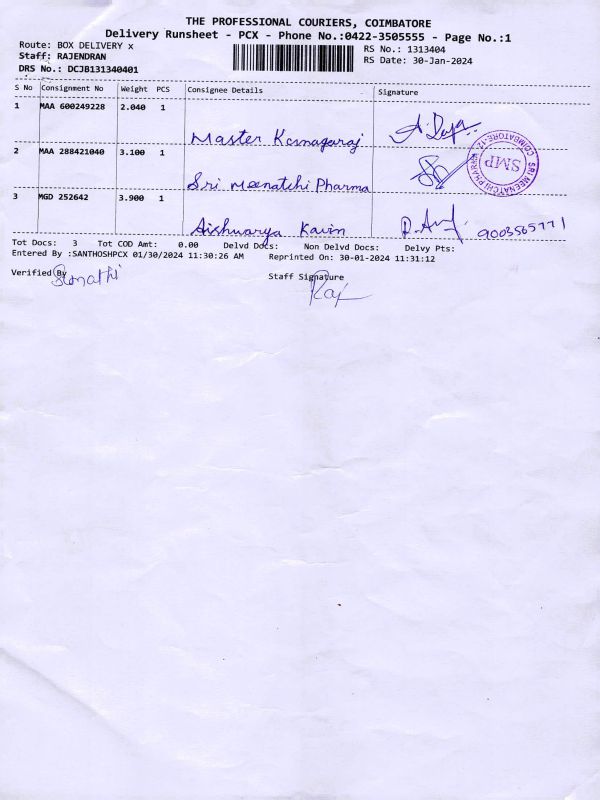 THE PROFESSIONAL COURIERS, COIMBATORE
Delivery Runsheet - PCX - Phone No.:0422-3505555 - Page No.:1
Route: BOX DELIVERY x
RS No.: 1313404
Staff: RAJENDRAN
RS Date: 30-Jan-2024
DRS No.: DCJB131340401
S No Consignment No Weight PCS Consignee Details Signature
1 MAA 600249228 2.040 1
Master Kanagaraj
2 MAA 288421040 3.100 1
Sri Meenatchi Pharma
SRI MEENATCHI PHARMA
COIMBATORE-12
SMP
3 MGD 252642 3.900 1
Aishwarya Kavin
9003565771
Tot Docs: 3 Tot COD Amt: 0.00 Delvd Docs: Non Delvd Docs: Delvy Pts:
Entered By :SANTHOSHPCX 01/30/2024 11:30:26 AM Reprinted On: 30-01-2024 11:31:12
Verified By
Staff Signature
Raj